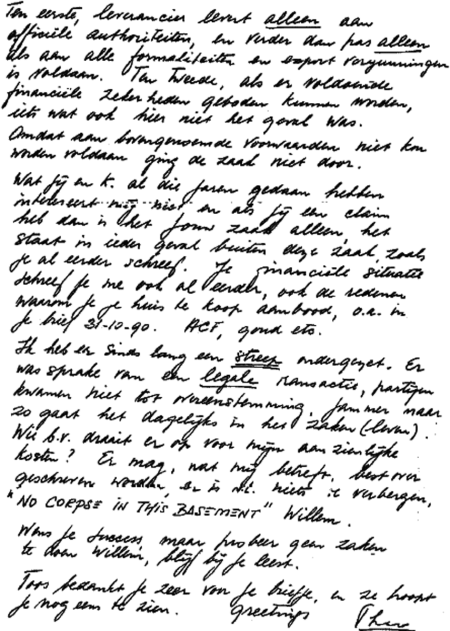 Ten eerste, leverancier levert alleen aan
officiële authoriteiten, en verder dan pas alleen
als aan alle formaliteiten en export vergunningen
is voldaan. Ten tweede, als er voldoende
financiële zekerheden geboden kunnen worden,
iets wat ook hier niet het geval was.
Omdat aan bovengenoemde voorwaarden niet kon
worden voldaan ging de zaak niet door.
Wat jij en K. al die jaren gedaan hebben
interesseert mij niet en als jij een claim
heb dan is het jouw zaak alleen, het
staat in ieder geval buiten deze zaak, zoals
je al eerder schreef. Je financiële situatie
schreef je me ook al eerder, ook de redenen
waarom je je huis te koop aanbood, o.a. in
je brief 31-10-90. ACF, goud etc.
Ik heb er sinds lang een streep ondergezet. Er
was sprake van een legale transactie, partijen
kwamen niet tot overeenstemming. Jammer maar
zo gaat het dagelijks in het zaken(-leven).
Wie b.v. draait er op voor mijn aanzienlijke
kosten? Er mag, wat mij betreft, best over
geschreven worden, er is n.l. niets te verbergen,
"NO CORPSE IN THIS BASEMENT" Willem.
Wens je success, maar probeer geen zaken
te doen Willem, blijf bij je leest.
Toos bedankt je zeer voor je briefje, en ze hoopt
je nog eens te zien. Greetings